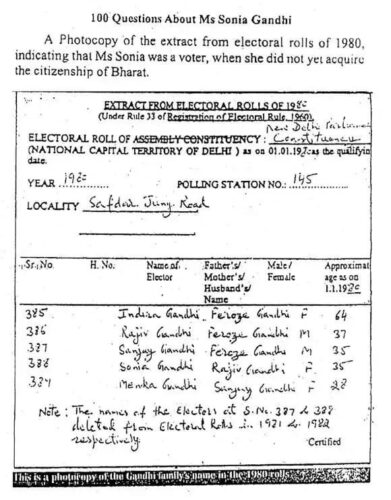 100 Questions About Ms Sonia Gandhi
A Photocopy of the extract from electoral rolls of 1980,
indicating that Ms Sonia was a voter, when she did not yet acquire
the citizenship of Bharat.
EXTRACT FROM ELECTORAL ROLLS OF 1980
(Under Rule 33 of Registration of Electoral Rule, 1960).
New Delhi Parliament
ELECTORAL ROLL OF ASSEMBLY CONSTITUENCY : Constituency
(NATIONAL CAPITAL TERRITORY OF DELHI ) as on 01.01.19 as the qualifyin
date.
YEAR 1980 POLLING STATION NO. 145
LOCALITY Safdar Jung Road
Sr. No. H. No. Name of Father's/ Male/ Approximat
Elector Mother's/ Female age as on
Husband's/ 1.1.1980
Name
385 Indira Gandhi Feroze Gandhi F 64
386 Rajiv Gandhi Feroze Gandhi M 37
387 Sanjay Gandhi Feroze Gandhi M 35
388 Sonia Gandhi Rajiv Gandhi F 35
389 Menka Gandhi Sanjay Gandhi F 28
Note : The names of the Electors at S.No. 387 & 388
deleted from Electoral Rolls in 1981 & 1982
respectively.
Certified
This is a photocopy of the Gandhi family's name in the 1980 rolls